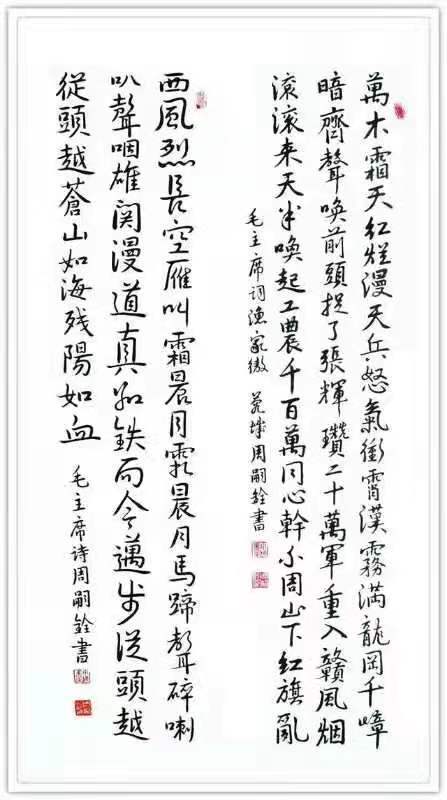 萬木霜天红爛漫天兵怒氣衝霄漢霧滿龍岡千嶂
暗齊聲喚前頭捉了張輝瓚二十萬軍重入贛風烟
滚滚来天半喚起工農千百萬同心幹不周山下红旗亂
毛主席词漁家傲 周嗣銓書
西風烈長空雁叫霜晨月霜晨月馬蹄聲碎喇
叭聲咽雄関漫道真如鉄而今邁步從頭越
從頭越蒼山如海残陽如血
毛主席诗周嗣銓書